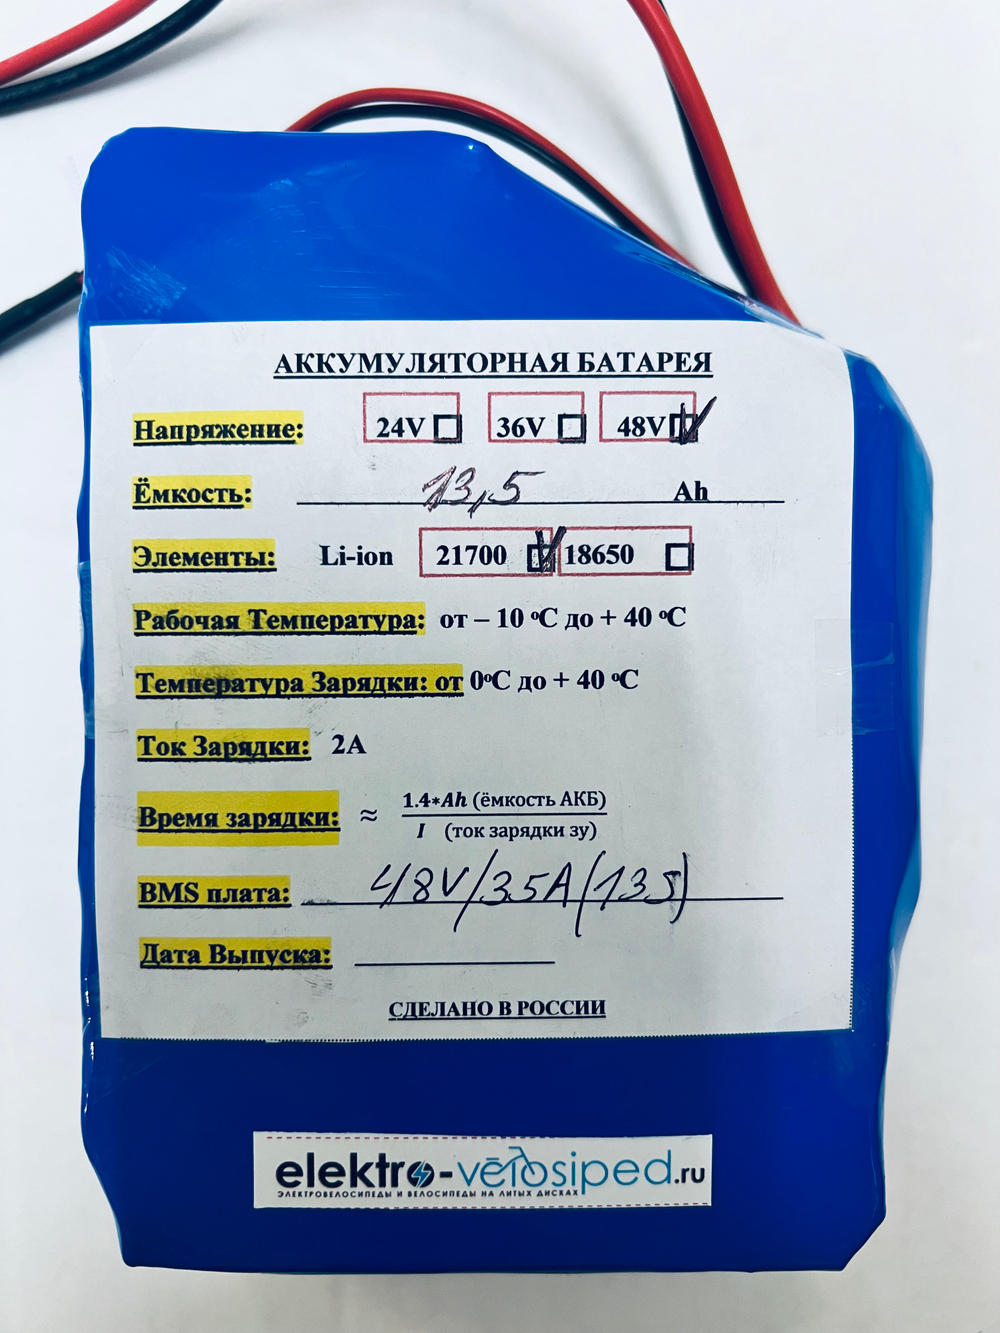 АККУМУЛЯТОРНАЯ БАТАРЕЯ
Напряжение: 24V 36V 48V
Ёмкость: 13,5 Ah
Элементы: Li-ion 21700 18650
Рабочая Температура: от – 10 ºC до + 40 ºC
Температура Зарядки: от 0ºC до + 40 ºC
Ток Зарядки: 2А
Время зарядки: ≈ 1.4*Ah (ёмкость АКБ)
I (ток зарядки зу)
BMS плата: 48V/35A(13S)
Дата Выпуска:
СДЕЛАНО В РОССИИ
elektro-velosiped.ru
ЭЛЕКТРОВЕЛОСИПЕДЫ И ВЕЛОСИПЕДЫ НА ЛИТЫХ ДИСКАХ